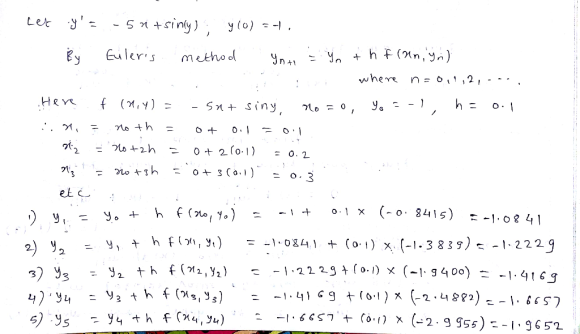 Let y' = - 5x + sin(y), y(0) = -1.
By Euler's method yn+1 = yn + h f(xn, yn)
where n = 0, 1, 2, ....
Here f (x, y) = - 5x + siny, x0 = 0, y0 = -1, h = 0.1
∴ x1 = x0 + h = 0 + 0.1 = 0.1
x2 = x0 + 2h = 0 + 2(0.1) = 0.2
x3 = x0 + 3h = 0 + 3(0.1) = 0.3
etc
1) y1 = y0 + h f(x0, y0) = -1 + 0.1 × (-0.8415) = -1.0841
2) y2 = y1 + h f(x1, y1) = -1.0841 + (0.1) × (-1.3839) = -1.2229
3) y3 = y2 + h f(x2, y2) = -1.2229 + (0.1) × (-1.9400) = -1.4169
4) y4 = y3 + h f(x3, y3) = -1.4169 + (0.1) × (-2.4882) = -1.6657
5) y5 = y4 + h f(x4, y4) = -1.6657 + (0.1) × (-2.9955) = -1.9652